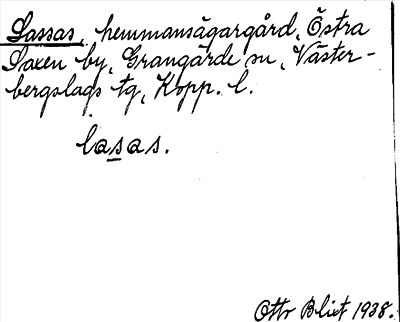 Lassas, hemmansägargård, Östra
Saxen by, Grangärde sn, Väster-
bergslags tg, Kopp. l.
lasas.
Otto Blixt 1938.